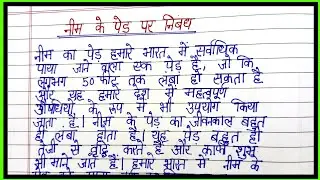 नीम के पेड़ पर निबंध
नीम का पेड़ हमारे भारत में सर्वाधिक
पाया जाने वाला एक पेड़ है, जो कि
लगभग 50 फीट तक लंबा हो सकता है
और यह हमारे देश से महत्वपूर्ण
औषधियों के रूप में भी उपयोग किया
जाता है. नीम के पेड़ का जीवनकाल बहुत
ही लंबा होता है। यह पेड़ बहुत ही
तेजी से वृद्धि करते हैं और काफी शुभ
माने जाते हैं। हमारे भारत में नीम के